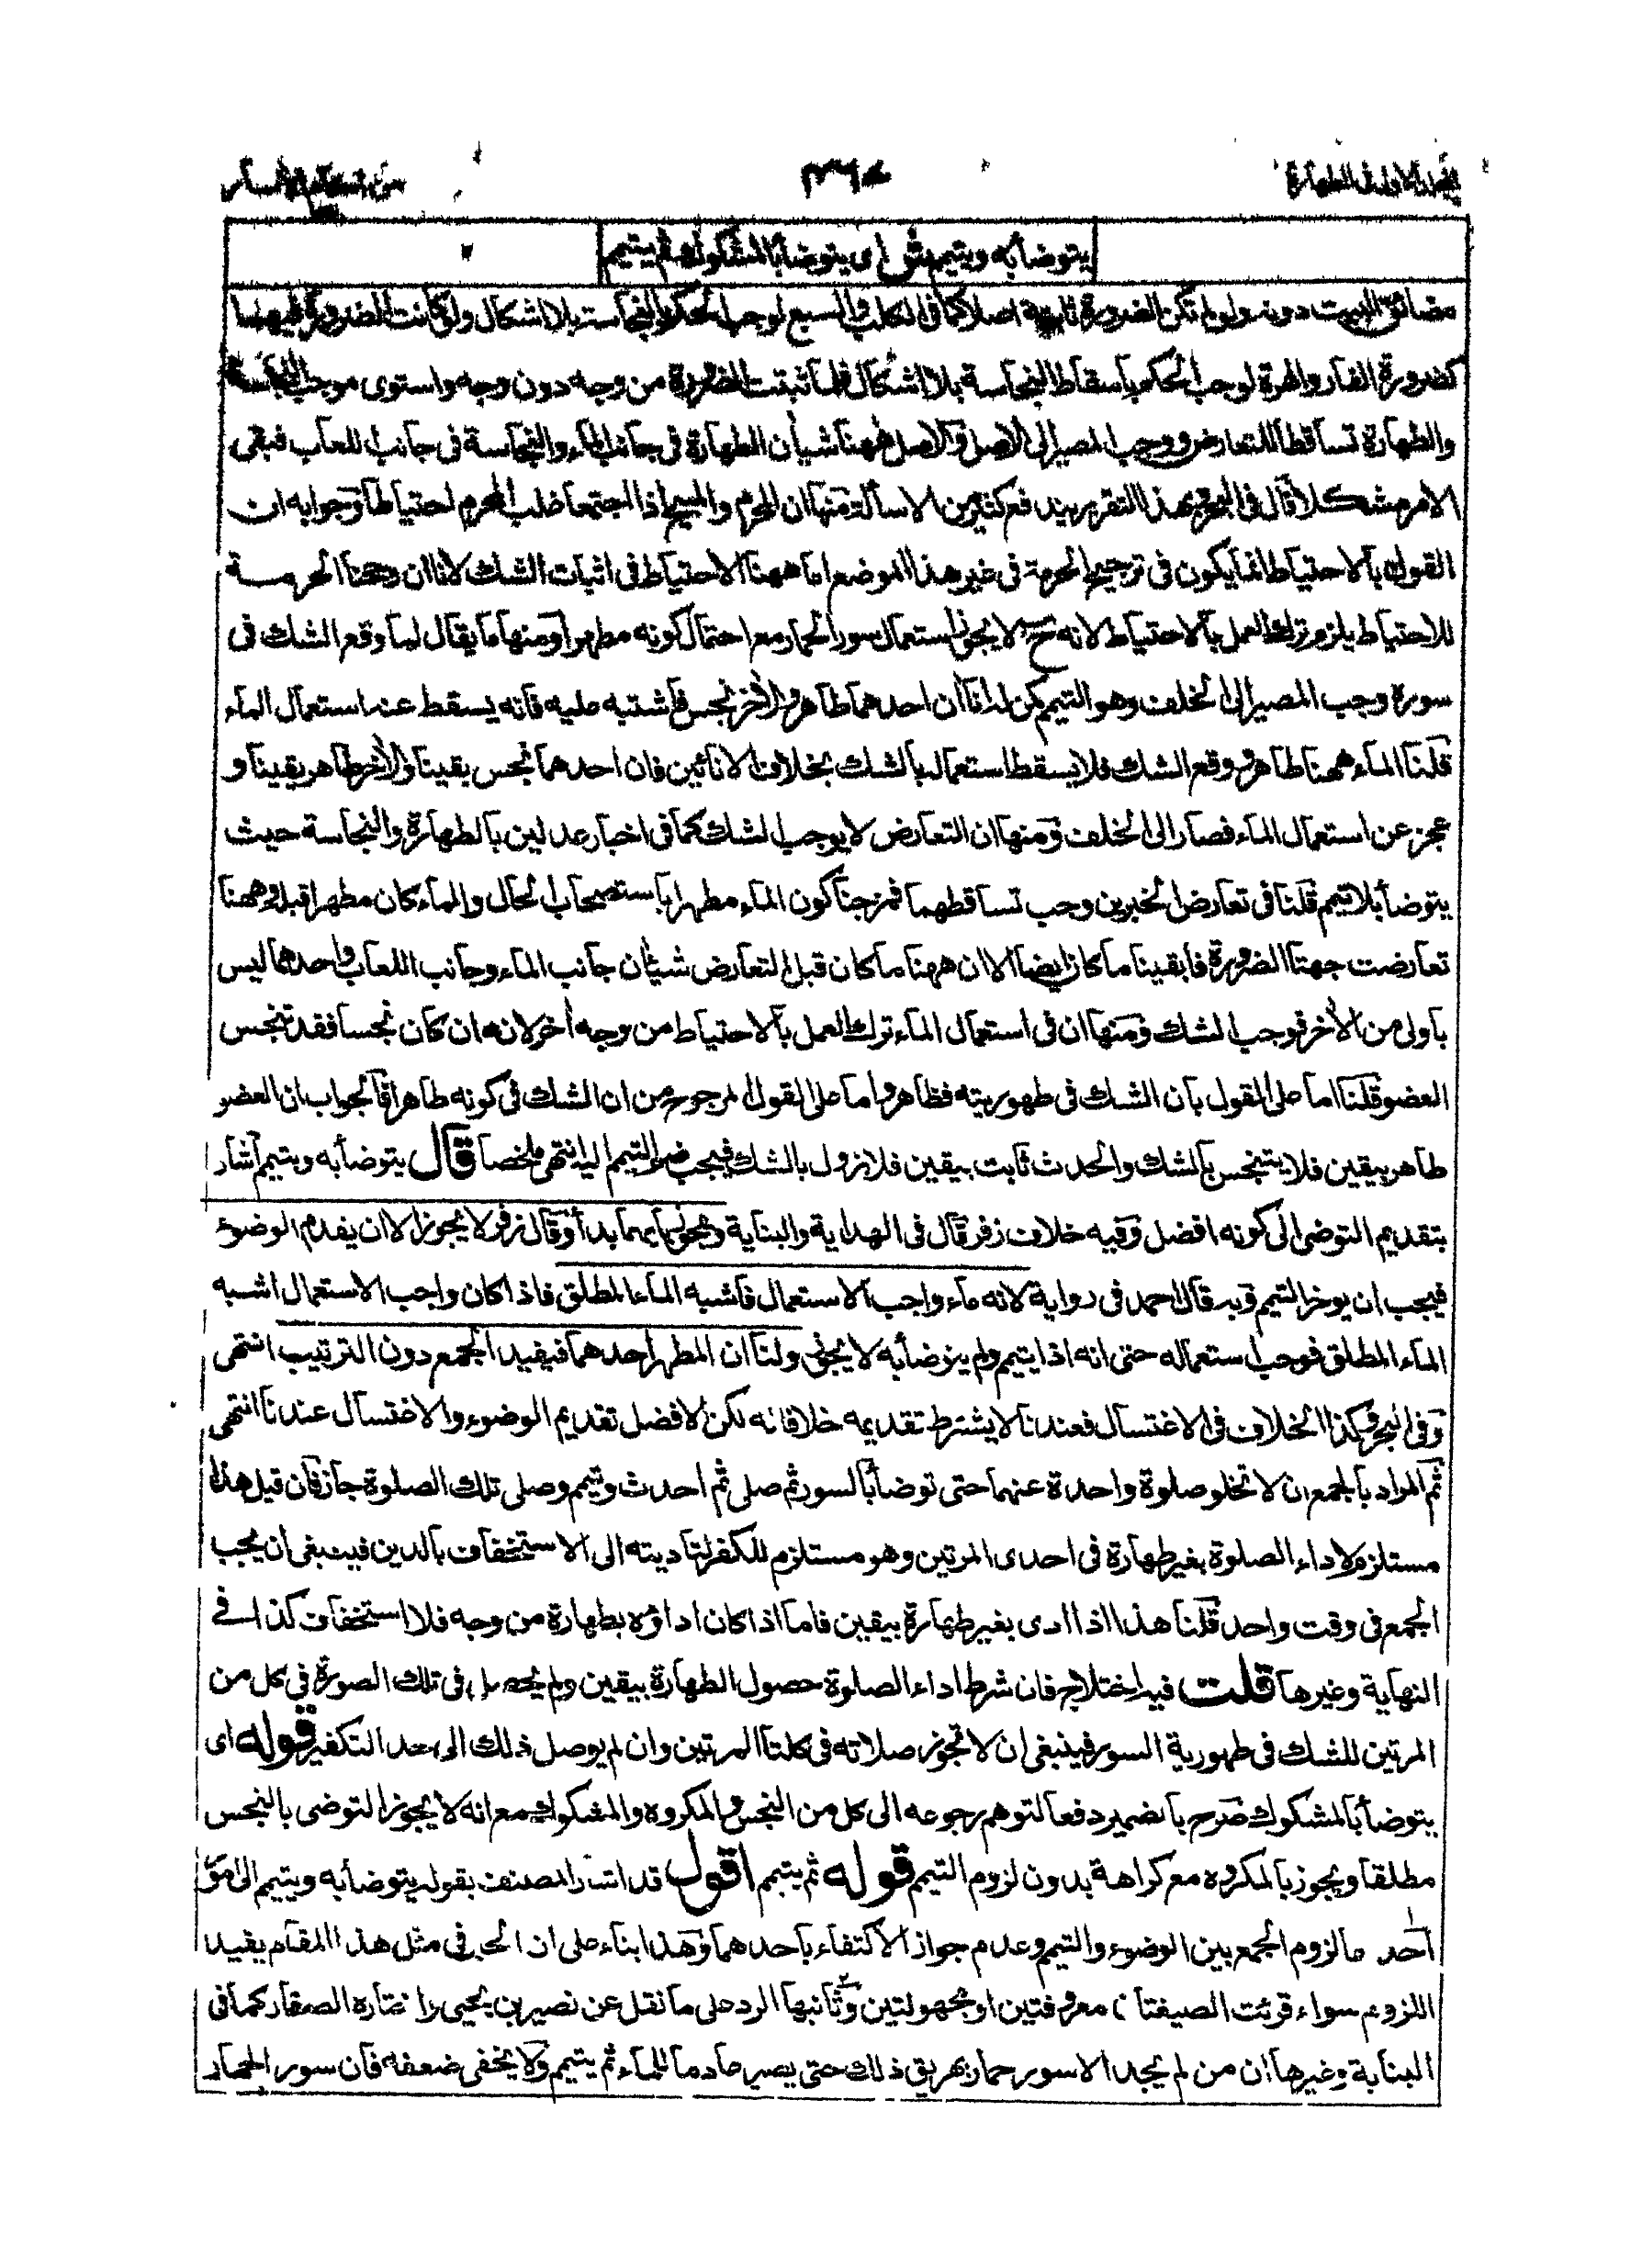 يتوضأ به ويتيمم ش اى يتوضأ بالمشكوك ثم يتيمم
مضائق البيت دونه ولو لم تكن الضرورة ثابتة اصلا كما فى الكلب والسبع لوجب الحكم بالنجاسة بلا اشكال ولو كانت الضرورة فيهما
كضرورة الفار والهرة لوجب الحكم باسقاط النجاسة بلا اشكال فلما ثبتت الضرورة من وجه دون وجه واستوى موجب النجاسة
والطهارة تساقطا للتعارض ووجب المصير الى الاصل والاصل ههنا شيأن الطهارة فى جانب الماء والنجاسة فى جانب اللعاب فبقى
الامر مشكلا قال فى البحر وبهذا التقرير يندفع كثير من الاسألة منها ان المحرم والمبيح اذا اجتمعا غلب المحرم احتياطا وجوابه ان
القول بالاحتياط انما يكون فى ترجيح الحرمة فى غير هذا الموضع اما ههنا الاحتياط فى اثبات الشك لانا ان رجحنا الحرمة
للاحتياط يلزم ترك العمل بالاحتياط لانه ح لا يجوز استعمال سور الحمار مع احتمال كونه مطهرا ومنها ما يقال لما وقع الشك فى
سوره وجب المصير الى الخلف وهو التيمم كمن له اناأن احدهما طاهر والأخر نجس فاشتبه عليه فانه يسقط عنه استعمال الماء
قلنا الماء ههنا طاهر ووقع الشك فلا يسقط استعماله بالشك بخلاف الانائين فان احدهما نجس يقينا والأخر طاهر يقينا و
عجز عن استعمال الماء فصار الى الخلف ومنها ان التعارض لا يوجب الشك كما فى اخبار عدلين بالطهارة والنجاسة حيث
يتوضأ بلا تيمم قلنا فى تعارض الخبرين وجب تساقطهما فمزجنا كون الماء مطهرا باستصحاب الحال والماء كان مطهرا قبله وههنا
تعارضت جهتا الضرورة فابقينا ما كان ايضا الا ان ههنا ما كان قبل التعارض شيئان جانب الماء وجانب اللعاب واحدهما ليس
باولى من الأخر فوجب الشك ومنها ان فى استعمال الماء ترك العمل بالاحتياط من وجه أخر لانه ان كان نجسا فقد تنجس
العضو قلنا اما على القول بان الشك فى طهوريته فظاهر واما على القول المرجوح من ان الشك فى كونه طاهرا فالجواب ان العضو
طاهر بيقين فلا يتنجس بالشك والحدث ثابت بيقين فلا يزول بالشك فيجب ضم التيمم اليه انتهى ملخصا قال يتوضأ به ويتيمم اشار
بتقديم التوضى الى كونه افضل وفيه خلاف زفر قال فى الهداية والبناية ويجوز بايهما بدأ وقال زفر لا يجوز الا ان يقدم الوضوء
فيجب ان يوخر التيمم وبه قال احمد فى رواية لانه ماء واجب الاستعمال فاشبه الماء المطلق فاذا كان واجب الاستعمال اشبه
الماء المطلق فوجب استعماله حتى انه اذا يتيمم ولم يتوضأ به لا يجوز ولنا ان المطهر احدهما فيفيد الجمع دون الترتيب انتهى
وفى البحر وكذا الخلاف فى الاغتسال فعندنا لا يشترط تقديمه خلافا له لكن الافضل تقديم الوضوء والاغتسال عندنا انتهى
ثم المراد بالجمع ان لا تخلو صلوة واحدة عنهما حتى توضأ بالسور ثم صلى ثم احدث وتيمم وصلى تلك الصلوة جاز فان قيل هذا
مستلزم لاداء الصلوة بغير طهارة فى احدى المرتين وهو مستلزم للكفر لتاديته الى الاستخفاف بالدين فينبغى ان يجب
الجمع فى وقت واحد قلنا هذا اذا ادى بغير طهارة بيقين فاما اذا كان اداؤه بطهارة من وجه فلا استخفاف كذا فى
النهاية وغيرها قلت فيه اختلاج فان شرط اداء الصلوة حصول الطهارة بيقين ولم يحصل فى تلك الصورة فى كل من
المرتين للشك فى طهورية السور فينبغى ان لا تجوز صلاته فى كلتا المرتين وان لم يوصل ذلك الى حد التكفير قوله اى
يتوضأ بالمشكوك صرح بالضمير دفعا لتوهم رجوعه الى كل من النجس والمكروه والمشكوك مع انه لا يجوز التوضى بالنجس
مطلقا ويجوز بالمكروه مع كراهة بدون لزوم التيمم قوله ثم يتيمم اقول قد اشار المصنف بقوله يتوضأ به ويتيمم الى امور
احدها لزوم الجمع بين الوضوء والتيمم وعدم جواز الاكتفاء باحدهما وهذا بناء على ان الخبر فى مثل هذا المقام يفيد
اللزوم سواء قرئت الصيغتان معروفتين او مجهولتين وثانيها الرد على ما نقل عن نصير بن يحيى واختاره الصفار كما فى
البناية وغيرها ان من لم يجد الا سور حمار يهريق ذلك حتى يصير عادما للماء ثم يتيمم ولا يخفى ضعفه فان سور الحمار